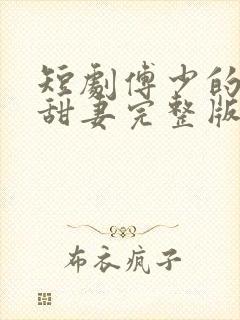 短劇傅少的
甜妻完整版
布衣疯子